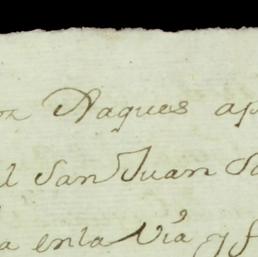 Naques ap
l San Juan S
a enla Via y f